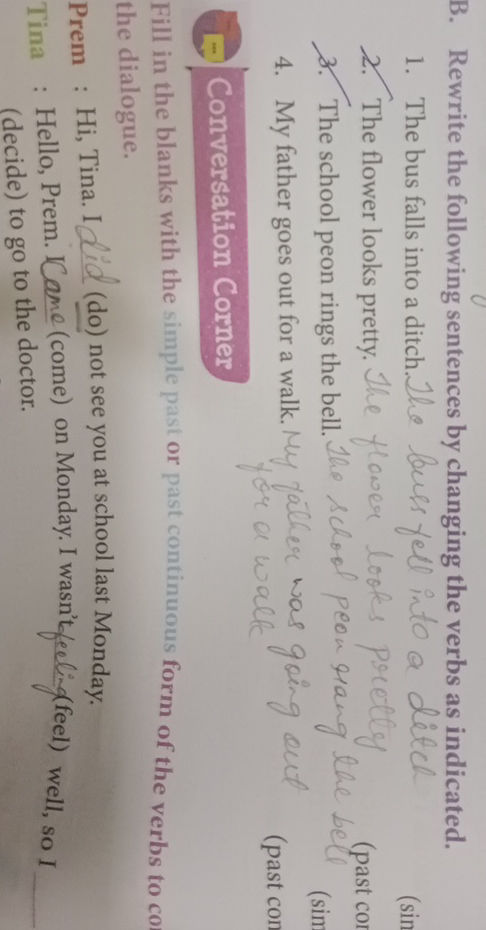 B. Rewrite the following sentences by changing the verbs as indicated.
1. The bus falls into a ditch. The bus fell into a ditch (sim
2. The flower looks pretty. The flower looks pretty (past con
3. The school peon rings the bell. The school peon rang the bell (sim
4. My father goes out for a walk. My father was going out (past con
for a walk
Conversation Corner
Fill in the blanks with the simple past or past continuous form of the verbs to co
the dialogue.
Prem : Hi, Tina. I did (do) not see you at school last Monday.
Tina : Hello, Prem. I came (come) on Monday. I wasn't feeling (feel) well, so I
(decide) to go to the doctor.